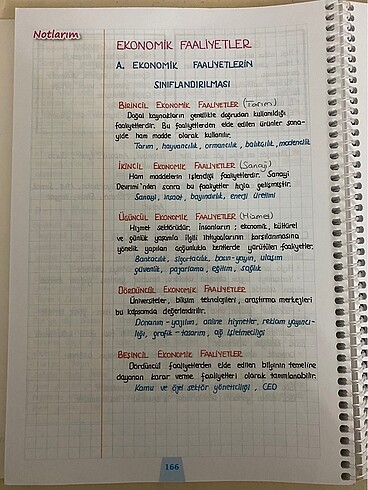 Notlarım
EKONOMİK FAALİYETLER
A. EKONOMİK FAALİYETLERİN
SINIFLANDIRILMASI
BİRİNCİL EKONOMİK FAALİYETLER (Tarım)
Doğal kaynakların genellikle doğrudan kullanıldığı
faaliyetlerdir. Bu faaliyetlerden elde edilen ürünler sana-
yide ham madde olarak kullanılır.
Tarım, hayvancılık, ormancılık, balıkçılık, madencilik
İKİNCİL EKONOMİK FAALİYETLER (Sanayi)
Ham maddelerin işlendiği faaliyetlerdir. Sanayi
Devrimi'nden sonra bu faaliyetler hızla gelişmiştir.
Sanayi, inşaat, bayındırlık, enerji üretimi
ÜÇÜNCÜL EKONOMİK FAALİYETLER (Hizmet)
Hizmet sektörüdür. İnsanların; ekonomik, kültürel
ve günlük yaşamla ilgili ihtiyaçlarının karşılanmasına
yönelik yapılan çoğunlukla kentlerde yürütülen faaliyetler.
Bankacılık, sigortacılık, basın-yayın, ulaşım
güvenlik, pazarlama, eğitim, sağlık
DÖRDÜNCÜL EKONOMİK FAALİYETLER
Üniversiteler, bilişim teknolojileri, araştırma merkezleri
bu kapsamda değerlendirilir.
Donanım-yazılım, online hizmetler, reklam yayıncı-
lığı, grafik-tasarım, ağ işletmeciliği
BEŞİNCİL EKONOMİK FAALİYETLER
Dördüncül faaliyetlerden elde edilen bilginin temeline
dayanan karar verme faaliyetleri olarak tanımlanabilir.
Kamu ve özel sektör yöneticiliği, CEO
166